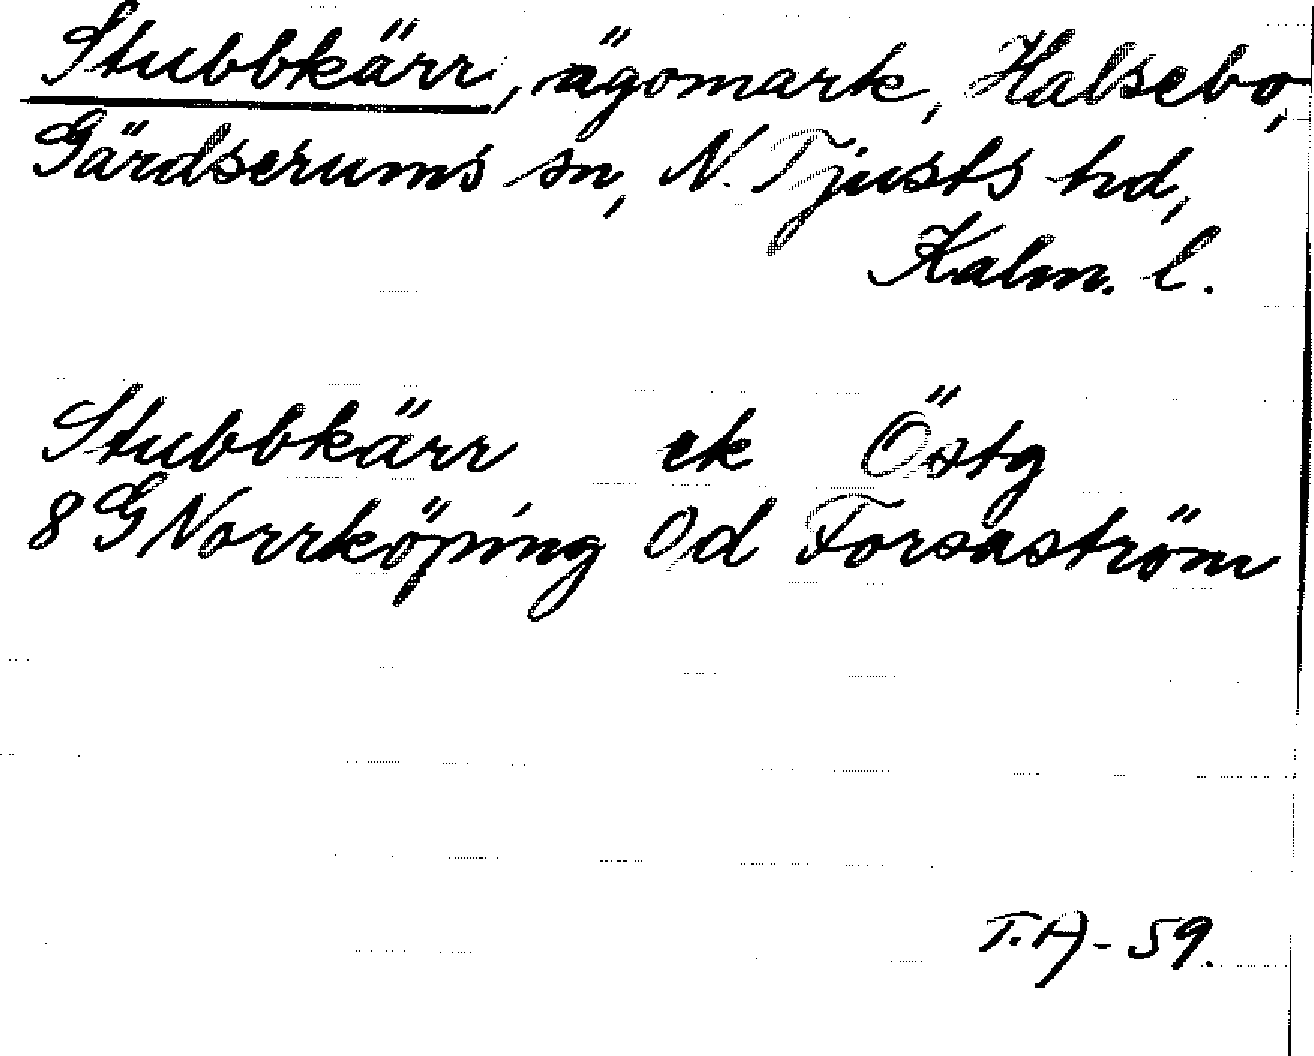 Stubbkärr, ägomark, Halsebo,
Gärdserums sn, N. Tjusts hd,
Kalm. l.
Stubbkärr ek Östg
8 G Norrköping 0d Forsaström
T.A - 59.